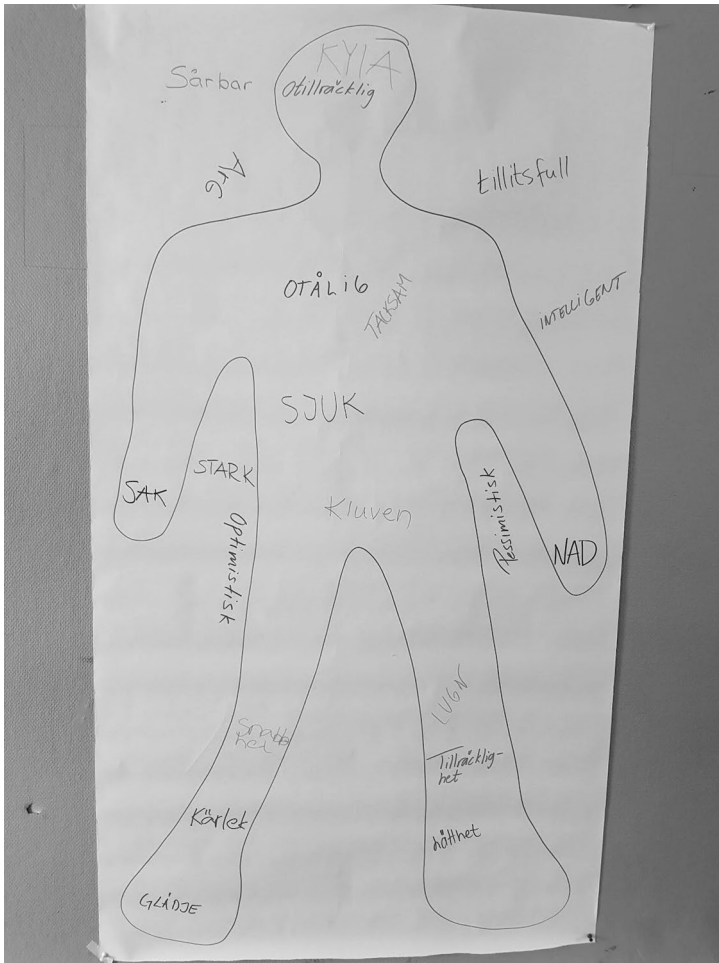 KYLA
Sårbar
Otillräcklig
ArG
tillitsfull
OTÅLiG
TACKSAM
INTELLIGENT
SJUK
STARK
SAK
Kluven
Optimistisk
Pessimistisk
NAD
LUGN
Snabb
het
Tillräcklig-
het
Kärlek
lätthet
GLÄDJE